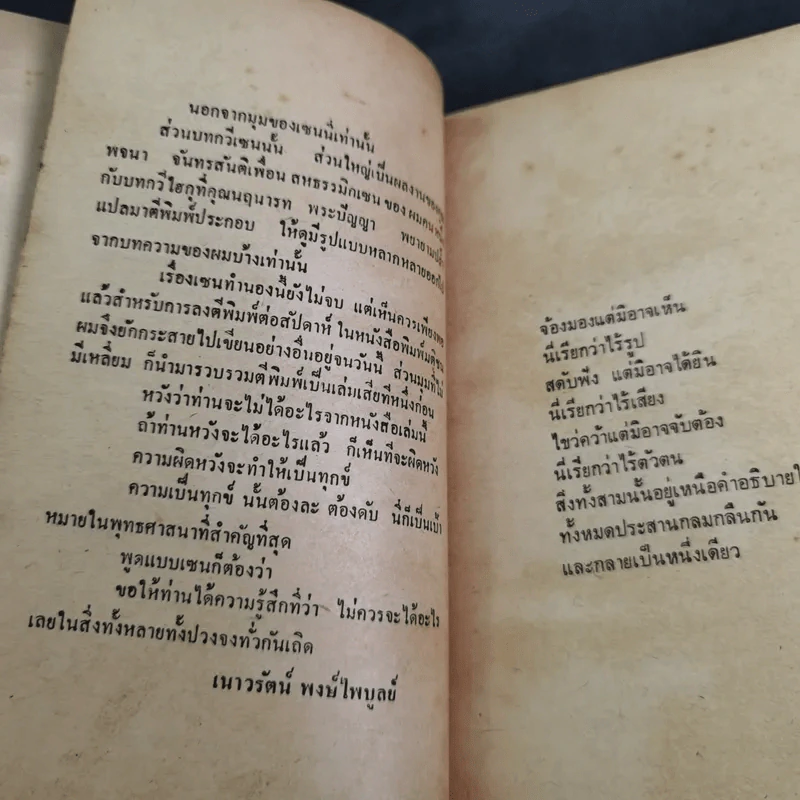 นอกจากมุมของเซนนี่เท่านั้น
ส่วนบทกวีเซนนั้น ส่วนใหญ่เป็นผลงานของคุณ
พจนา จันทรสันติเพื่อน สหธรรมิกเซน ของ ผมคน
กับบทกวีไฮกุที่คุณนฤนารท พระปัญญา พยายาม
แปลมาตีพิมพ์ประกอบ ให้ดูมีรูปแบบหลากหลายออกไป
จากบทความของผมบ้างเท่านั้น
เรื่องเซนทำนองนี้ยังไม่จบ แต่เห็นควรเพียงพอ
แล้วสำหรับการลงตีพิมพ์ต่อสัปดาห์ ในหนังสือพิมพ์มติชน
ผมจึงยักกระสายไปเขียนอย่างอื่นอยู่จนวันนี้ ส่วนมุมที่ไม่
มีเหลี่ยม ก็นำมารวบรวมตีพิมพ์เป็นเล่มเสียที่หนึ่งก่อน
หวังว่าท่านจะไม่ได้อะไรจากหนังสือเล่มนี้
ถ้าท่านหวังจะได้อะไรแล้ว ก็เห็นที่จะผิดหวัง
ความผิดหวังจะทำให้เป็นทุกข์
ความเป็นทุกข์ นั้นต้องละ ต้องดับ นี่ก็เป็นเป้า
หมายในพุทธศาสนาที่สำคัญที่สุด
พูดแบบเซนก็ต้องว่า
ขอให้ท่านได้ความรู้สึกที่ว่า ไม่ควรจะได้อะไร
เลยในสิ่งทั้งหลายทั้งปวงจงทั่วกันเถิด
เนาวรัตน์ พงษ์ไพบูลย์
จ้องมองแต่มิอาจเห็น
นี่เรียกว่าไร้รูป
สดับฟัง แต่มิอาจได้ยิน
นี่เรียกว่าไร้เสียง
ไขว่คว้าแต่มิอาจจับต้อง
นี่เรียกว่าไร้ตัวตน
สิ่งทั้งสามนั้นอยู่เหนือคำอธิบายใ
ทั้งหมดประสานกลมกลืนกัน
และกลายเป็นหนึ่งเดียว